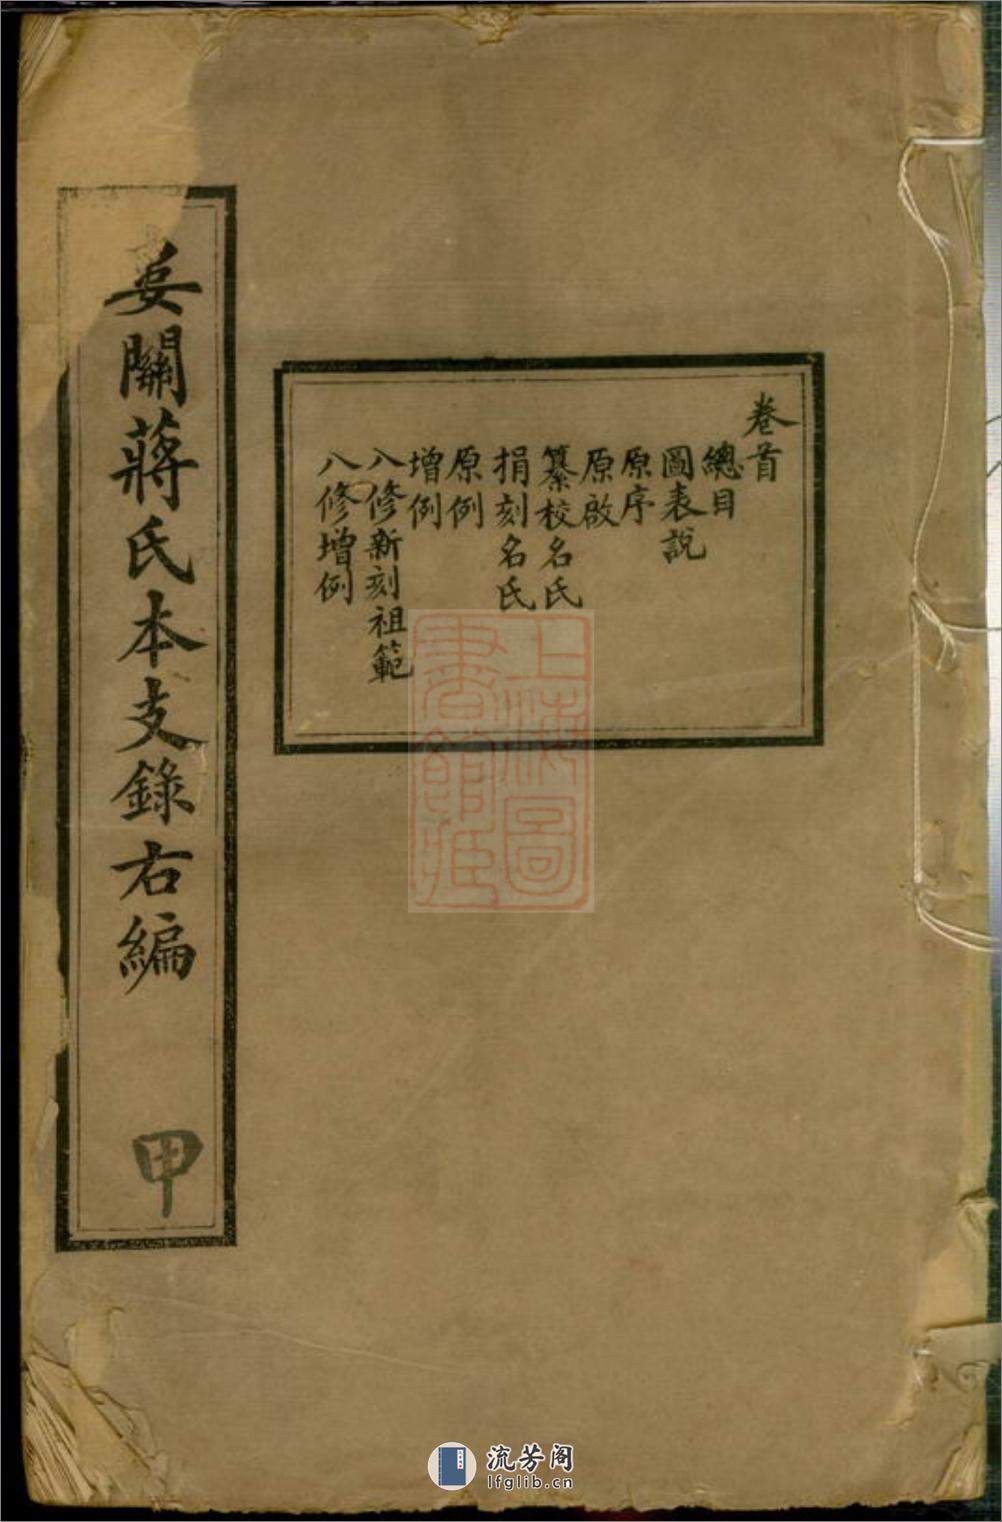 卷首
總目
圖表說
原序
原啟
纂校名氏
捐刻名氏
原例
增例
八修新刻祖範
八修增例
婁關蔣氏本支錄右編
甲
上海圖
書館藏
流芳阁
lfglib.cn